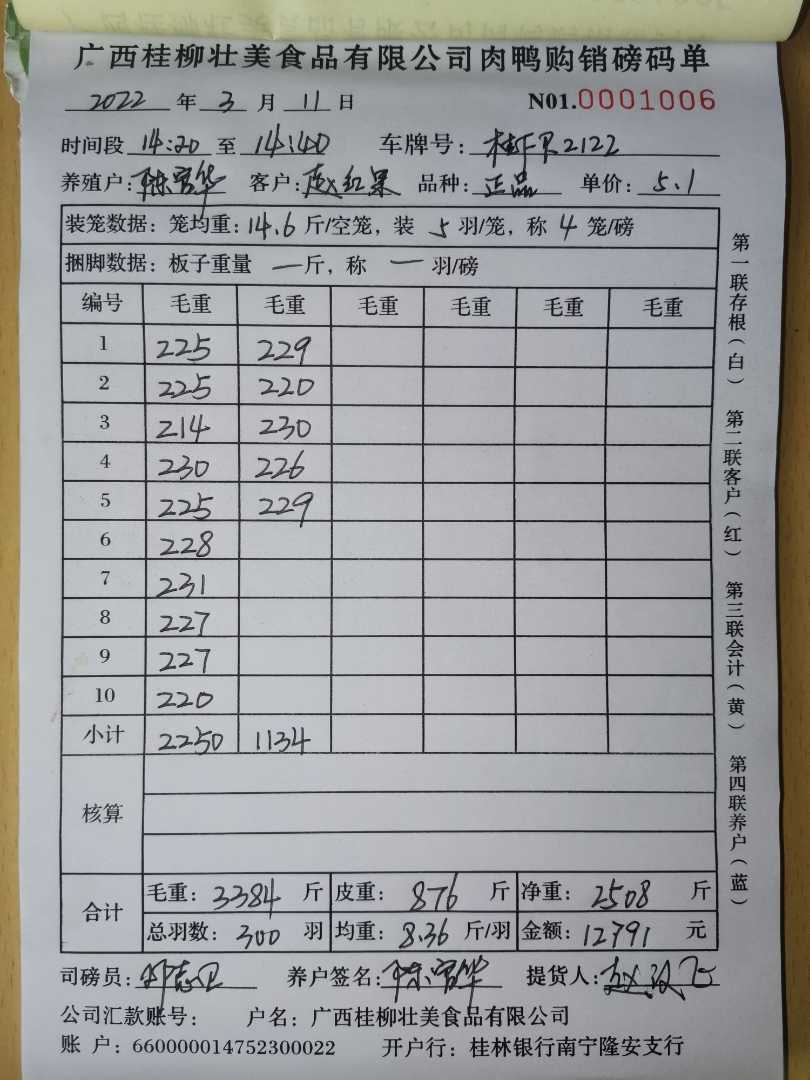 广西桂柳壮美食品有限公司肉鸭购销磅码单
2022 年 3 月 11 日 N01.0001006
时间段 14:20 至 14:40 车牌号: 桂FR2122
养殖户: 陈官华 客户: 赵红果 品种: 正品 单价: 5.1
装笼数据: 笼均重: 14.6 斤/空笼, 装 5 羽/笼, 称 4 笼/磅
捆脚数据: 板子重量 一 斤, 称 一 羽/磅
编号 毛重 毛重 毛重 毛重 毛重 毛重
1 225 229
2 225 220
3 214 230
4 230 226
5 225 229
6 228
7 231
8 227
9 227
10 220
小计 2250 1134
核算
合计 毛重: 3384 斤 皮重: 876 斤 净重: 2508 斤
总羽数: 300 羽 均重: 8.36 斤/羽 金额: 12791 元
司磅员: 养户签名: 陈官华 提货人:
公司汇款账号: 户名: 广西桂柳壮美食品有限公司
账 户: 660000014752300022 开户行: 桂林银行南宁隆安支行
第一联存根(白) 第二联客户(红) 第三联会计(黄) 第四联养户(蓝)